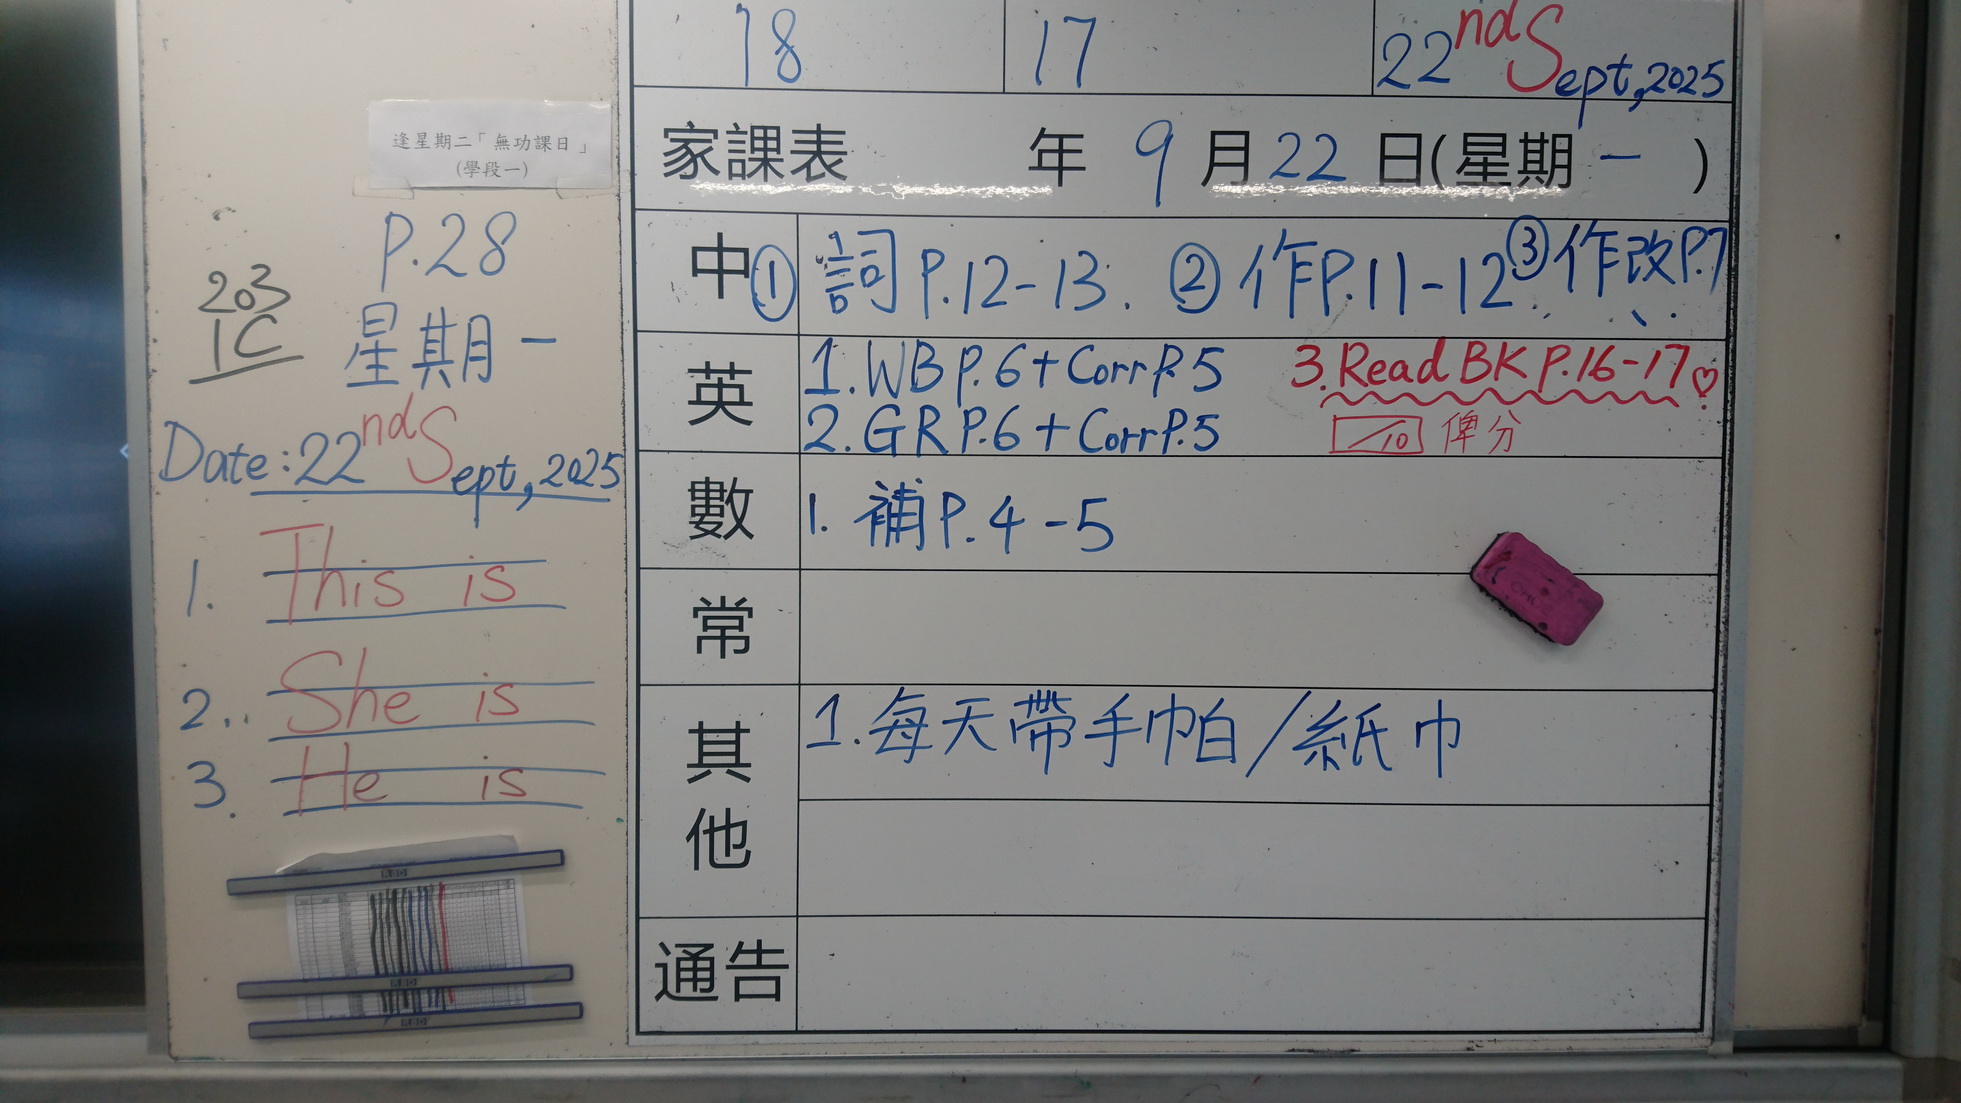 18
17
22nd Sept, 2025
家課表 年 9 月 22 日(星期 一 )
中 ① 詞 P.12-13. ② 作P.11-12 ③ 作改P.7
英 1. WB P.6 + Corr P.5 3. Read BK P.16-17 ♡
2. GR P.6 + Corr P.5 /10 俾分
數 1. 補 P.4-5
常
其他 1. 每天帶手帕/紙巾
通告
逢星期二「無功課日」
(學段一)
P.28
203
1C
星期一
Date: 22nd Sept, 2025
1. This is
2. She is
3. He is